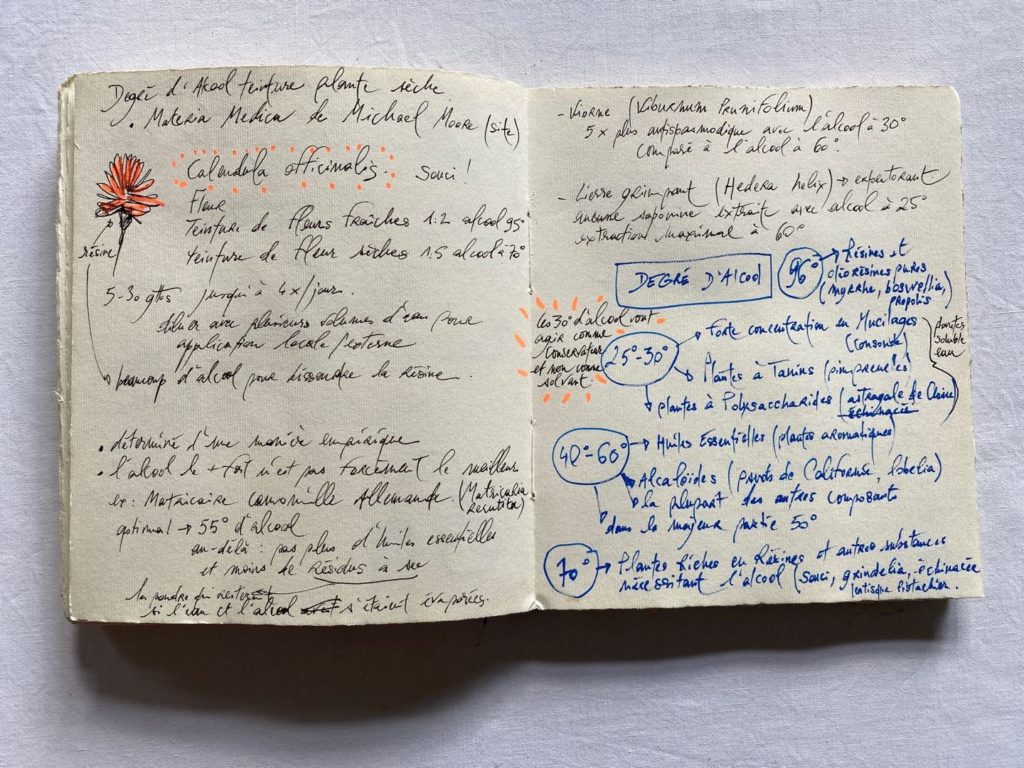 Degré d'Alcool teinture plante sèche
• Materia Medica de Michael Moore (site)
Calendula officinalis. Souci !
Fleur
Teinture de fleurs fraîches 1:2 alcool 95°
Teinture de fleur sèches 1:5 alcool à 70°
résine
5-30 gttes jusqu'à 4x/jour.
diluer avec plusieurs volumes d'eau pour
application locale externe
→ beaucoup d'alcool pour dissoudre la résine.
• déterminé d'une manière empirique
• l'alcool le + fort n'est pas forcément le meilleur
ex: Matricaire camomille Allemande (Matricaria
Recutita)
optimal → 55° d'alcool
au-delà : pas plus d'huiles essentielles
et moins de Résidus à sec
la poudre qui
si l'eau et l'alcool s'étaient évaporés.
- Viorne (Viburnum Prunifolium)
5 x plus antispasmodique avec l'alcool à 30°
comparé à l'alcool à 60°.
- Lierre grimpant (Hedera helix) → expectorant
aucune saponine extraite avec alcool à 25°
extraction maximal à 60°
DEGRÉ D'Alcool
96° → Résines et
oléorésines pures
(myrrhe, boswellia,
propolis
Les 30° d'alcool vont
agir comme
conservateur
et non comme
solvant.
25°-30°
→ Forte concentration en Mucilages
(consoude)
→ Plantes à Tanins (pimprenelles)
→ plantes à Polysaccharides (astragale de Chine)
echinacée
plantes
soluble
eau
40°-60° → Huiles Essentielles (plantes aromatiques)
→ Alcaloïdes (pavot de Californie, lobelia)
→ la plupart des autres composants
→ dans la majeur partie 50°
70° → Plantes Riches en Résines et autres substances
nécessitant l'alcool (souci, grindelia, echinacée
lentisque Pistachier.